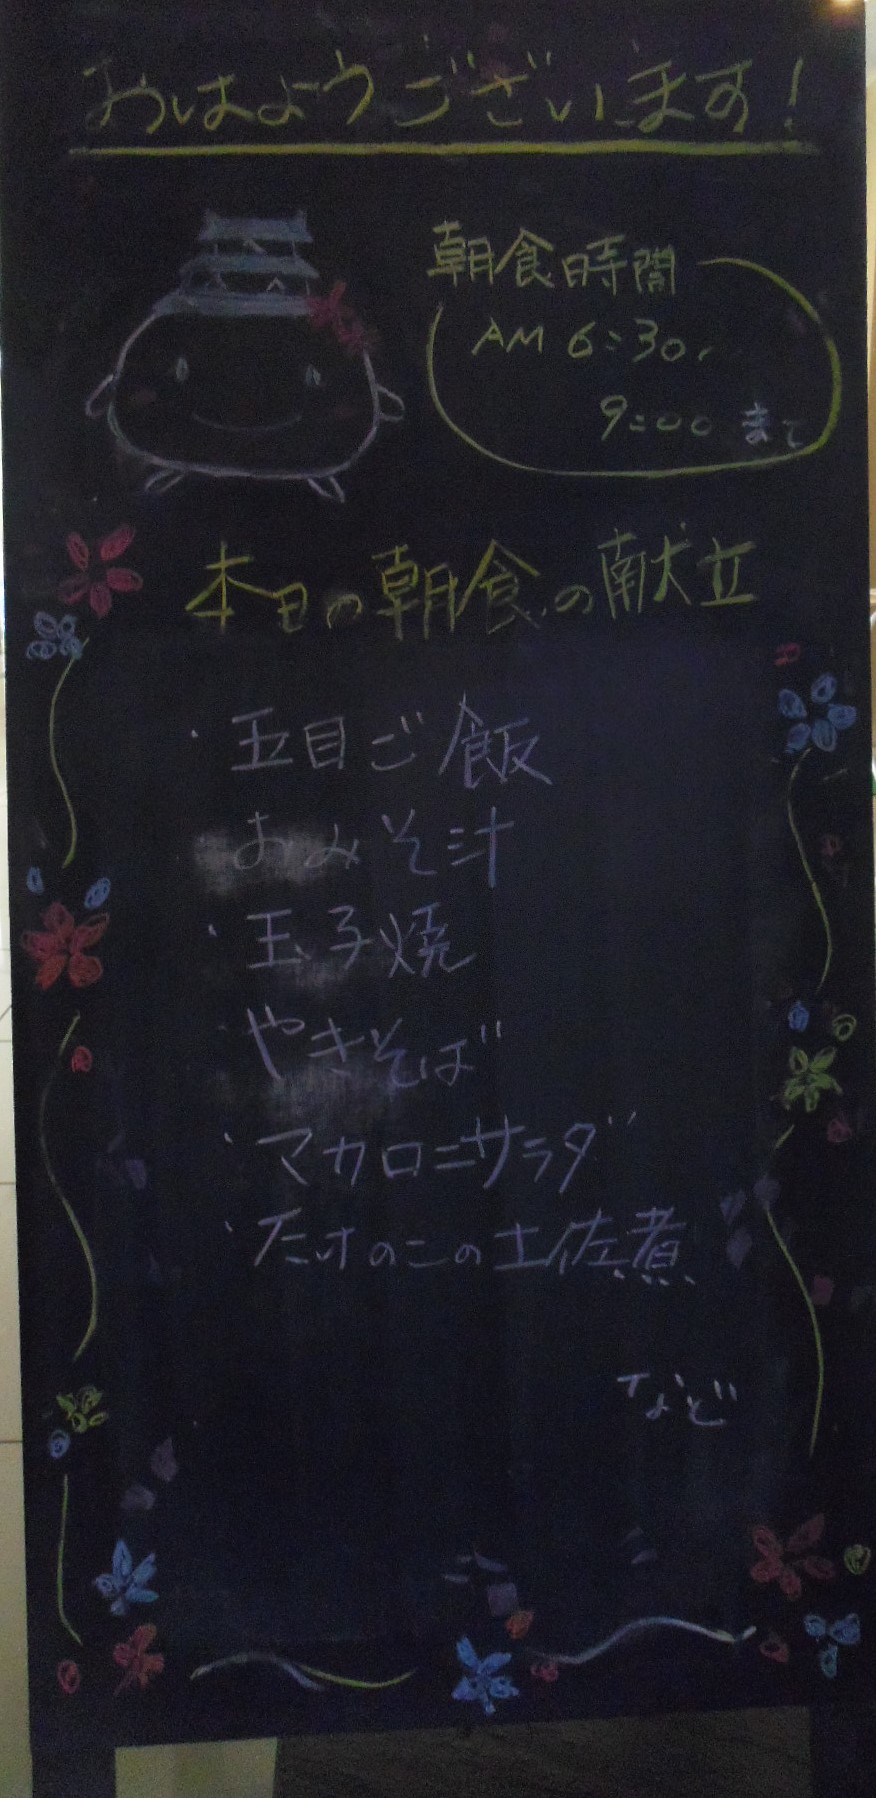 おはようございます!
朝食時間
AM 6:30〜
9:00 まで
本日の朝食の献立
・五目ご飯
おみそ汁
・玉子焼
・やきそば
・マカロニサラダ
・たけのこの土佐煮
など